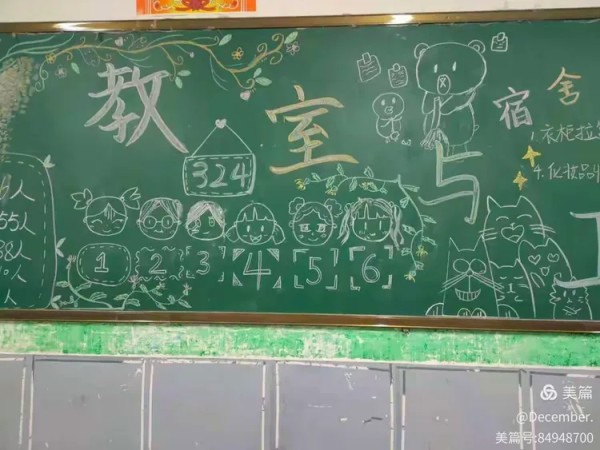 教室与宿舍
324
1 2 3 4 5 6
人
55人
38人
人
人
1.衣柜拉
4.化妆品
美篇
@December.
美篇号:84948700